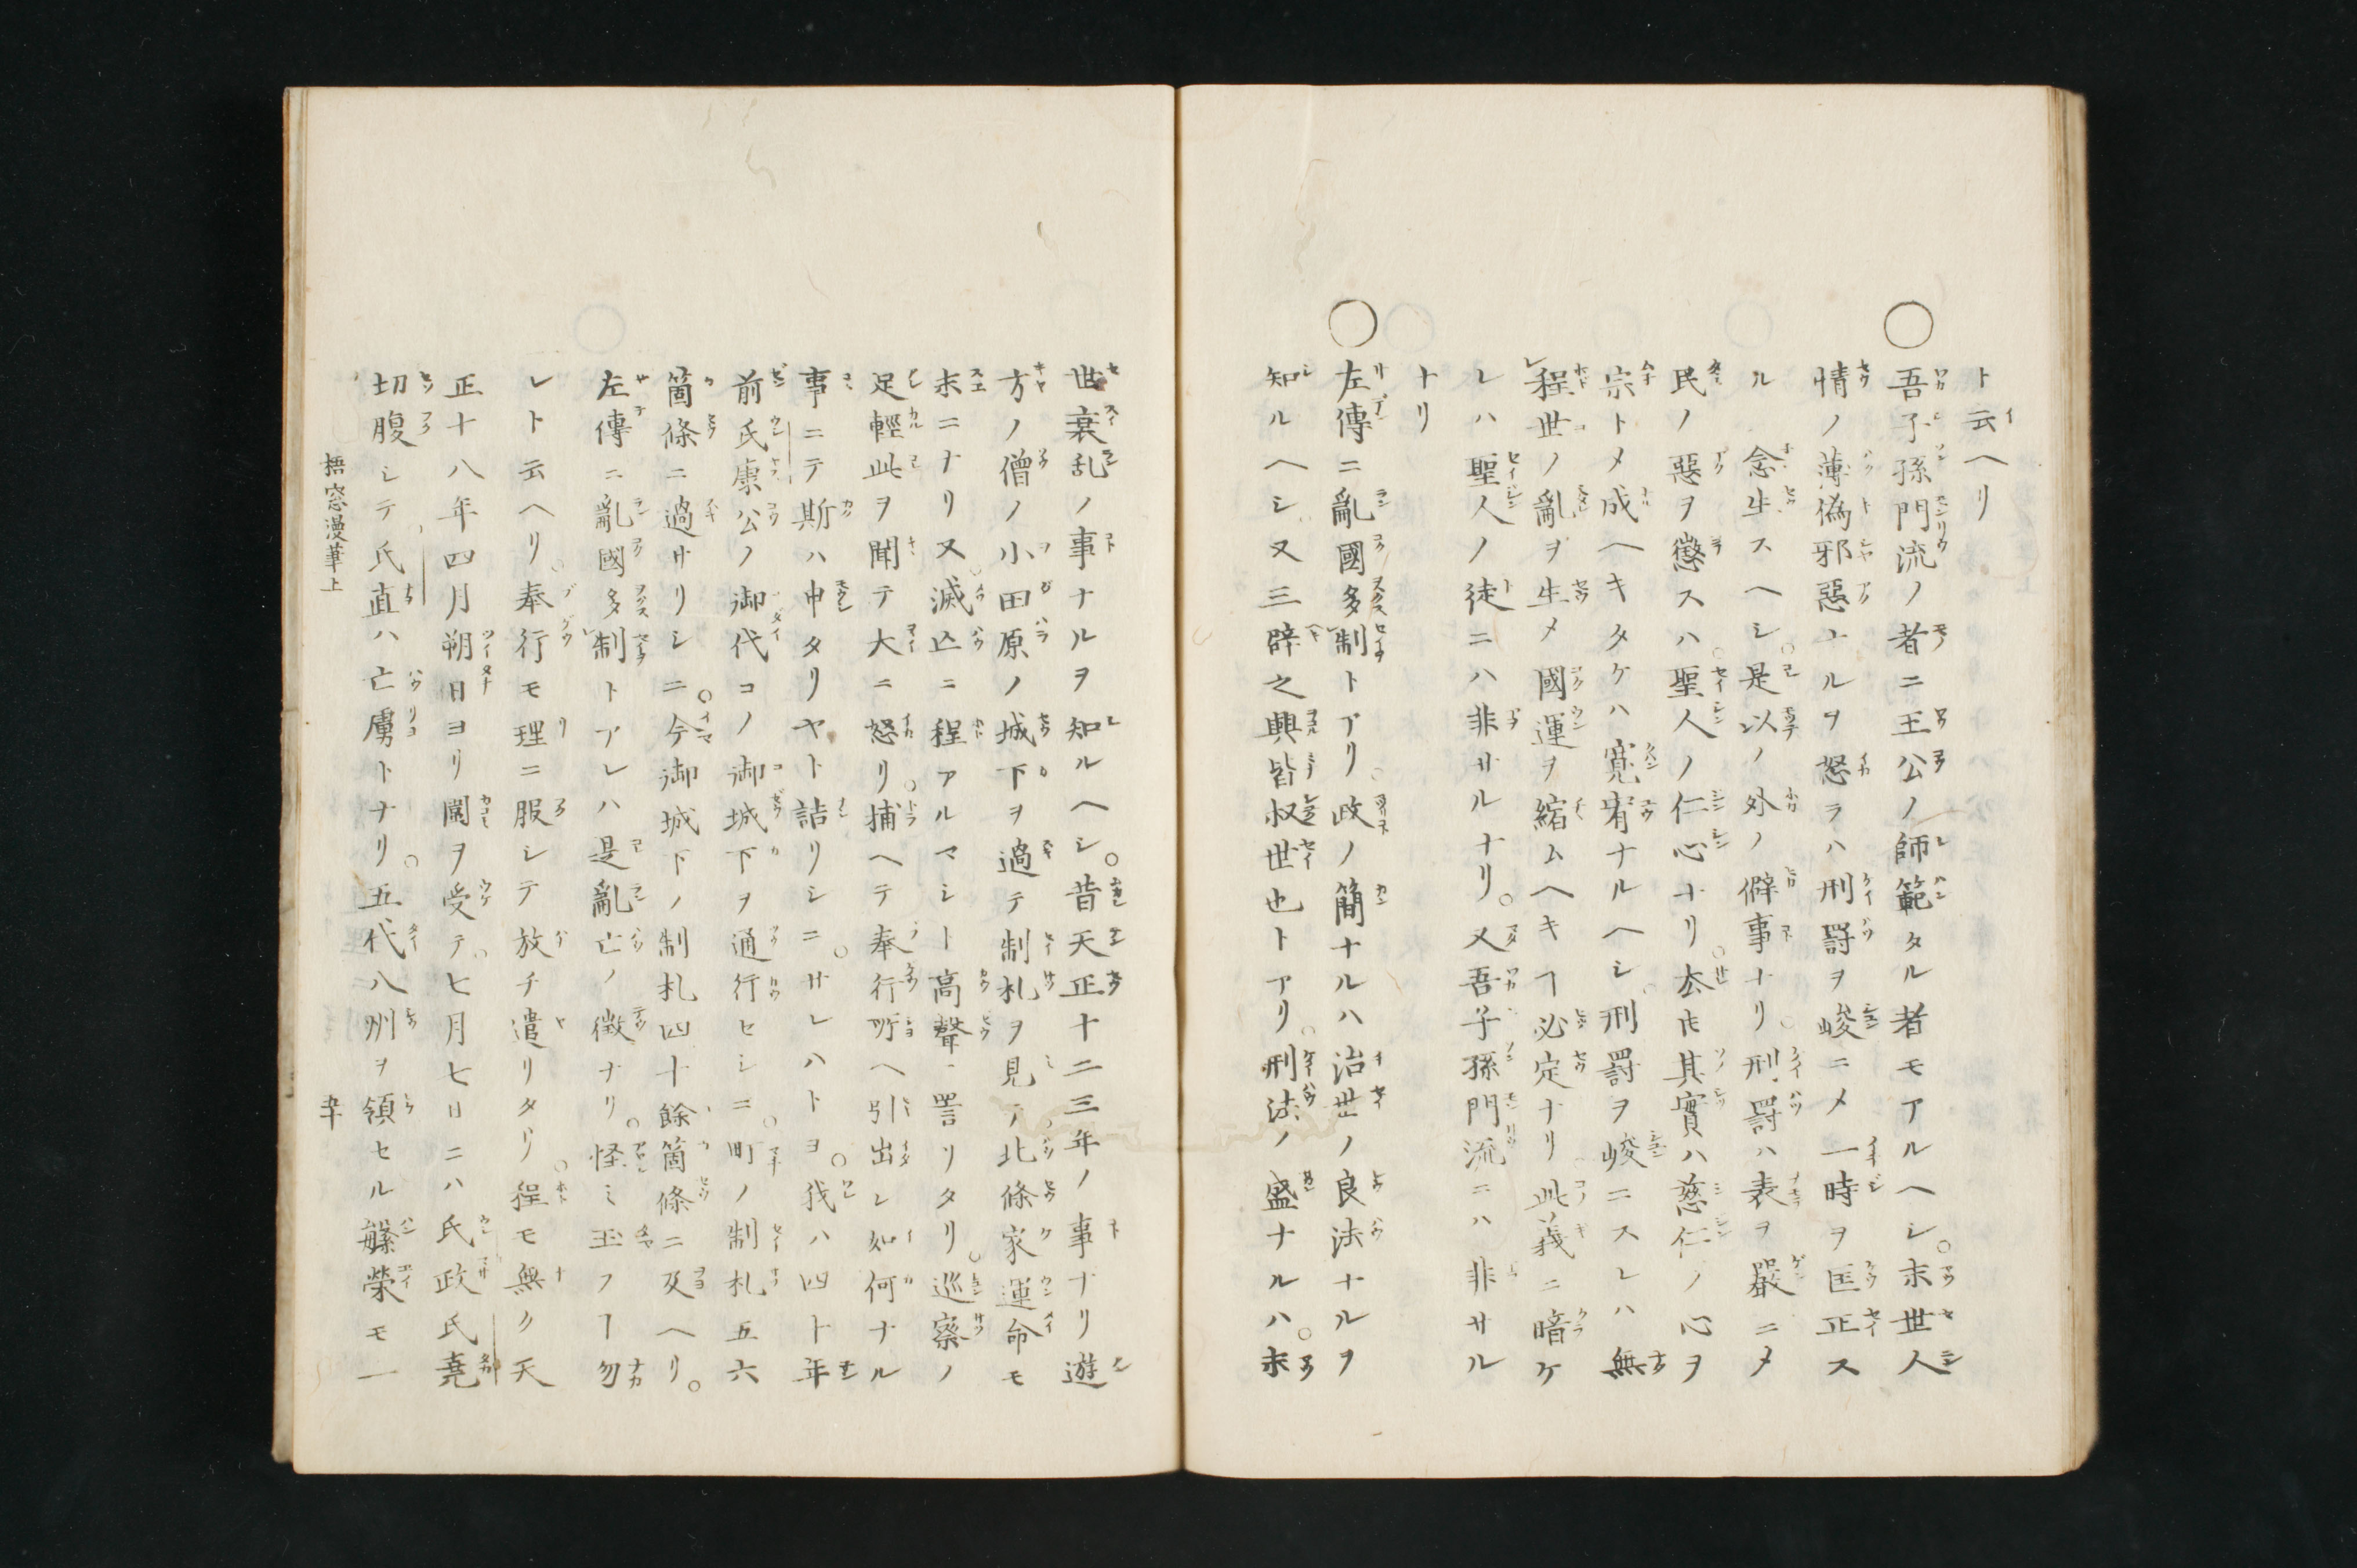 ト云ヘリ
○吾子孫門流ノ者ニ王公ノ師範タル者モアルヘシ。末世人
情ノ薄偽邪惡ナルヲ怒ラハ刑罸ヲ峻ニメ一時ヲ匡正ス
ル念生スヘシ。是以ノ外ノ僻事ナリ。刑罸ハ表ヲ嚴ニメ
民ノ惡ヲ懲スハ。聖人ノ仁心ナリ。去𪜈其實ハ慈仁ノ心ヲ
宗トメ成ヘキタケハ寛宥ナルヘシ。刑罸ヲ峻ニスレハ無
程世ノ亂ヲ生メ國運ヲ縮ムヘキヿ必定ナリ。此義ニ暗ケ
レハ聖人ノ徒ニハ非サルナリ。又吾子孫門流ニハ非サル
ナリ
○左傳ニ亂國多制トアリ。政ノ簡ナルハ治世ノ良法ナルヲ
知ルヘシ。又三辟之興皆叔世也トアリ。刑法ノ盛ナルハ。末
世衰乱ノ事ナルヲ知ルヘシ。昔天正十二三年ノ事ナリ遊
方ノ僧ノ小田原ノ城下ヲ過テ制札ヲ見テ。北條家運命モ
末ニナリヌ。滅亡ニ程アルマシト高聲ニ詈リタリ。巡察ノ
足輕此ヲ聞テ大ニ怒リ。捕ヘテ奉行所ヘ引出シ如何ナル
事ニテ斯ハ申タリヤト詰リシニ。サレハトヨ。我ハ四十年
前氏康公ノ御代コノ御城下ヲ通行セシニ。町ノ制札五六
箇條ニ過サリシニ。今御城下ノ制札四十餘箇條ニ及ヘリ。
左傳ニ亂國多制トアレハ是亂亡ノ徴ナリ。怪ミ玉フヿ勿
レト云ヘリ。奉行モ理ニ服シテ放チ遣リタリ。程モ無ク天
正十八年四月朔日ヨリ圍ヲ受テ。七月七日ニハ氏政氏堯
切腹シテ氏直ハ亡虜トナリ。五代八州ヲ領セル䋣榮モ一
梧窓漫筆上